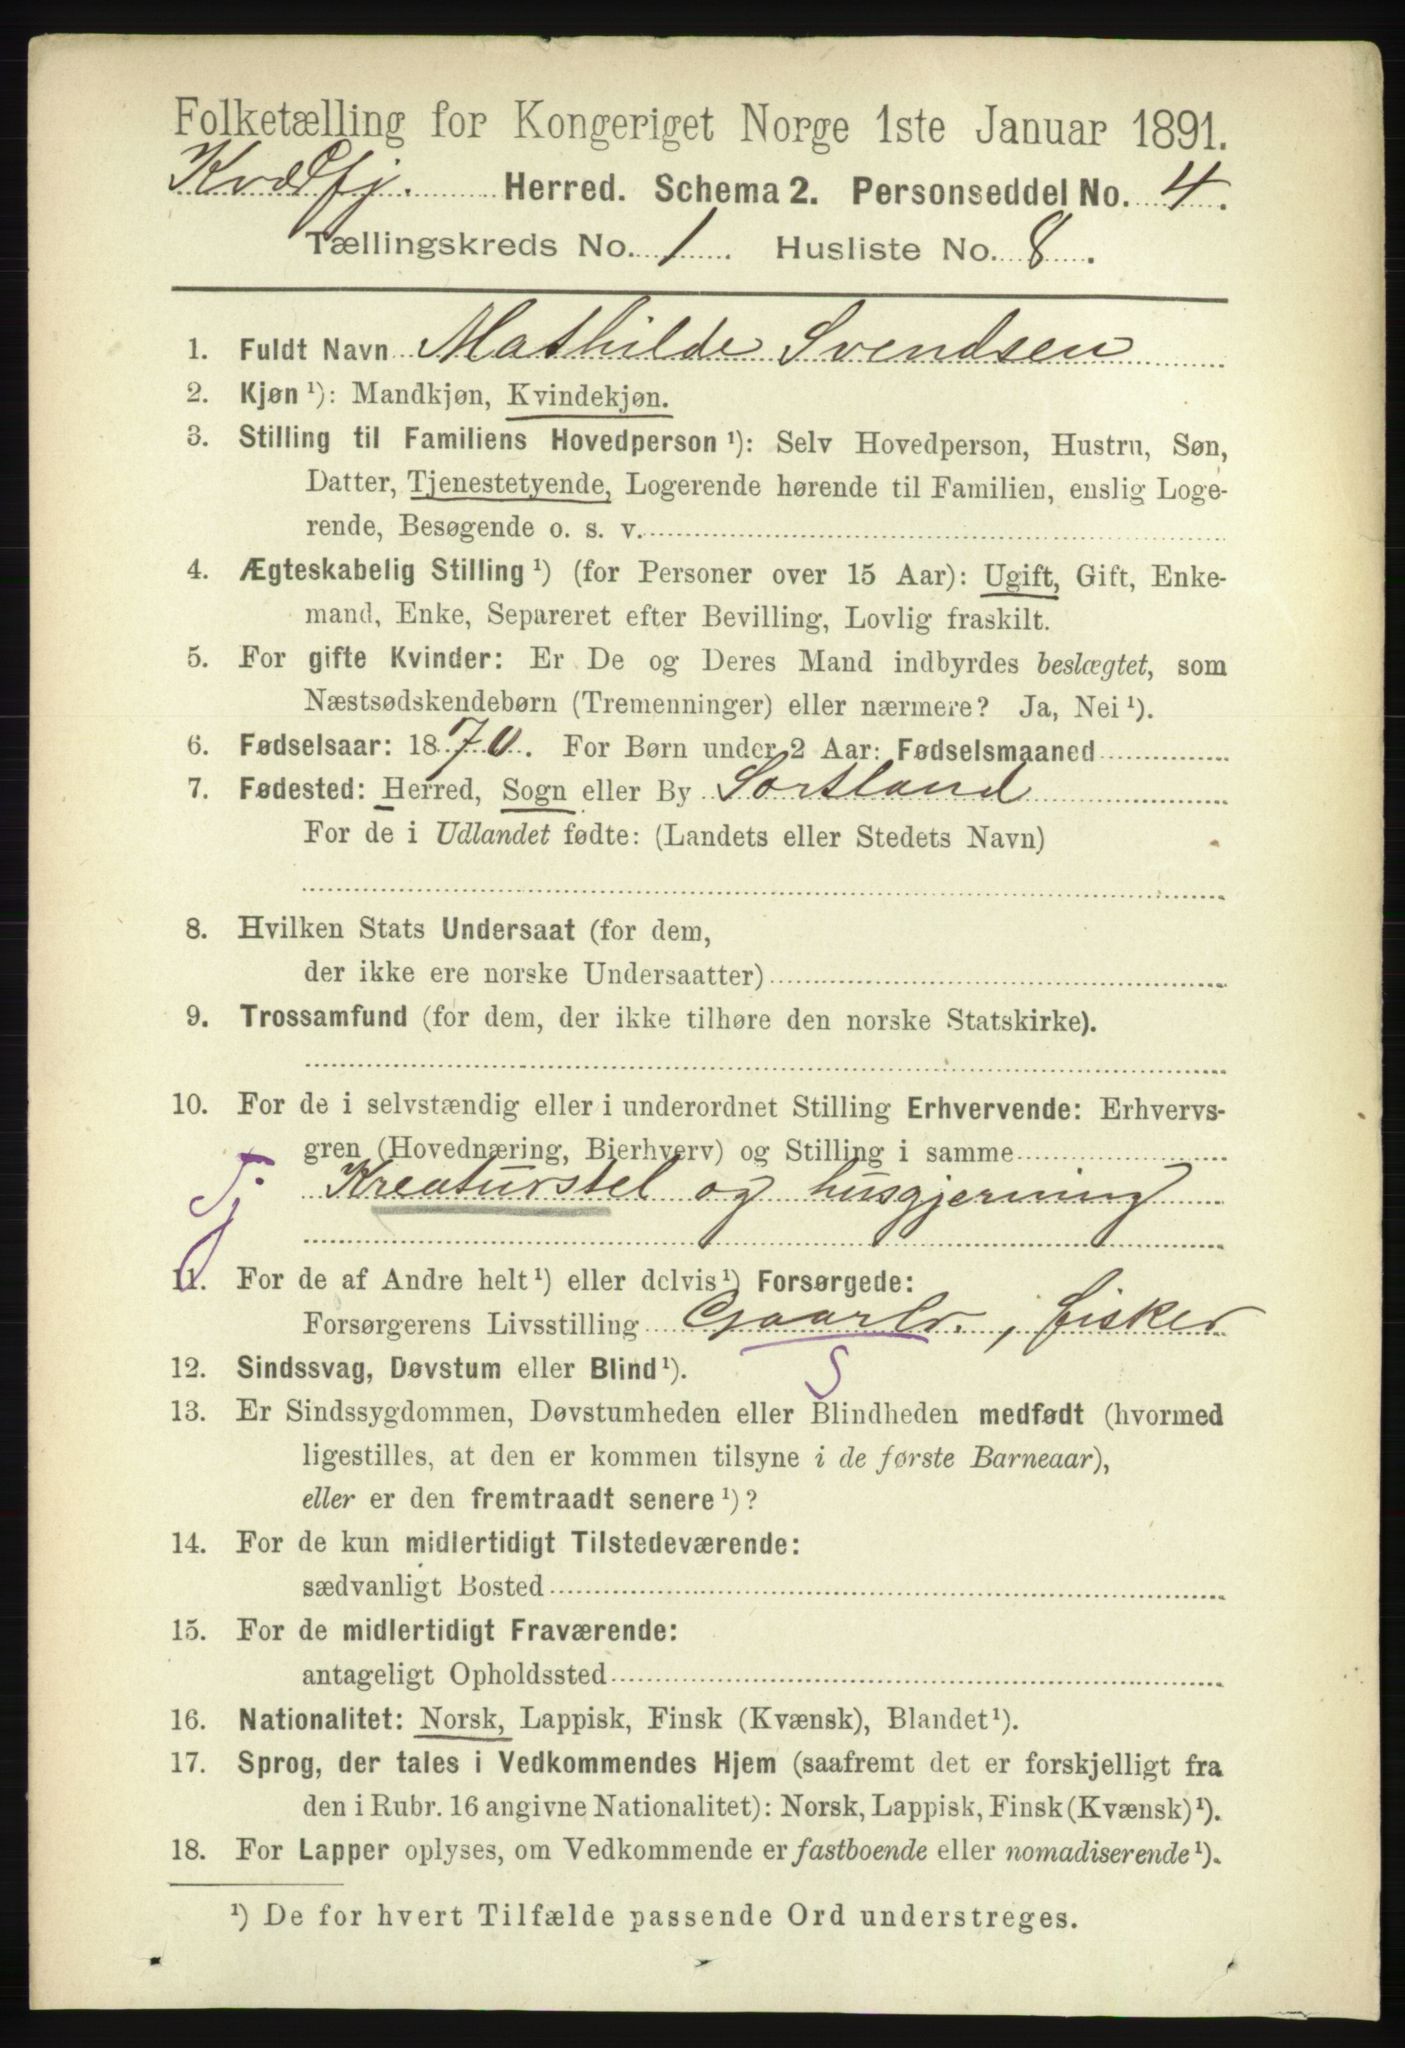 Folketælling for Kongeriget Norge 1ste Januar 1891.
Kvædfj. Herred. Schema 2. Personseddel No. 4.
Tællingskreds No. 1. Husliste No. 8.
1. Fuldt Navn Mathilde Svendsen
2. Kjøn ¹): Mandkjøn, Kvindekjøn.
3. Stilling til Familiens Hovedperson ¹): Selv Hovedperson, Hustru, Søn,
Datter, Tjenestetyende, Logerende hørende til Familien, enslig Loge-
rende, Besøgende o. s. v.
4. Ægteskabelig Stilling ¹) (for Personer over 15 Aar): Ugift, Gift, Enke-
mand, Enke, Separeret efter Bevilling, Lovlig fraskilt.
5. For gifte Kvinder: Er De og Deres Mand indbyrdes beslægtet, som
Næstsødskendebørn (Tremenninger) eller nærmere? Ja, Nei ¹).
6. Fødselsaar: 1870. For Børn under 2 Aar: Fødselsmaaned
7. Fødested: Herred, Sogn eller By Sortland
For de i Udlandet fødte: (Landets eller Stedets Navn)
8. Hvilken Stats Undersaat (for dem,
der ikke ere norske Undersaatter)
9. Trossamfund (for dem, der ikke tilhøre den norske Statskirke).
10. For de i selvstændig eller i underordnet Stilling Erhvervende: Erhvervs-
gren (Hovednæring, Bierhverv) og Stilling i samme
Tj. Kreaturstel og husgjerning
11. For de af Andre helt ¹) eller delvis ¹) Forsørgede:
Forsørgerens Livsstilling Gaardbr., fisker
S
12. Sindssvag, Døvstum eller Blind ¹).
13. Er Sindssygdommen, Døvstumheden eller Blindheden medfødt (hvormed
ligestilles, at den er kommen tilsyne i de første Barneaar),
eller er den fremtraadt senere ¹)?
14. For de kun midlertidigt Tilstedeværende:
sædvanligt Bosted
15. For de midlertidigt Fraværende:
antageligt Opholdssted
16. Nationalitet: Norsk, Lappisk, Finsk (Kvænsk), Blandet ¹).
17. Sprog, der tales i Vedkommendes Hjem (saafremt det er forskjelligt fra
den i Rubr. 16 angivne Nationalitet): Norsk, Lappisk, Finsk (Kvænsk) ¹).
18. For Lapper oplyses, om Vedkommende er fastboende eller nomadiserende ¹).
¹) De for hvert Tilfælde passende Ord understreges.